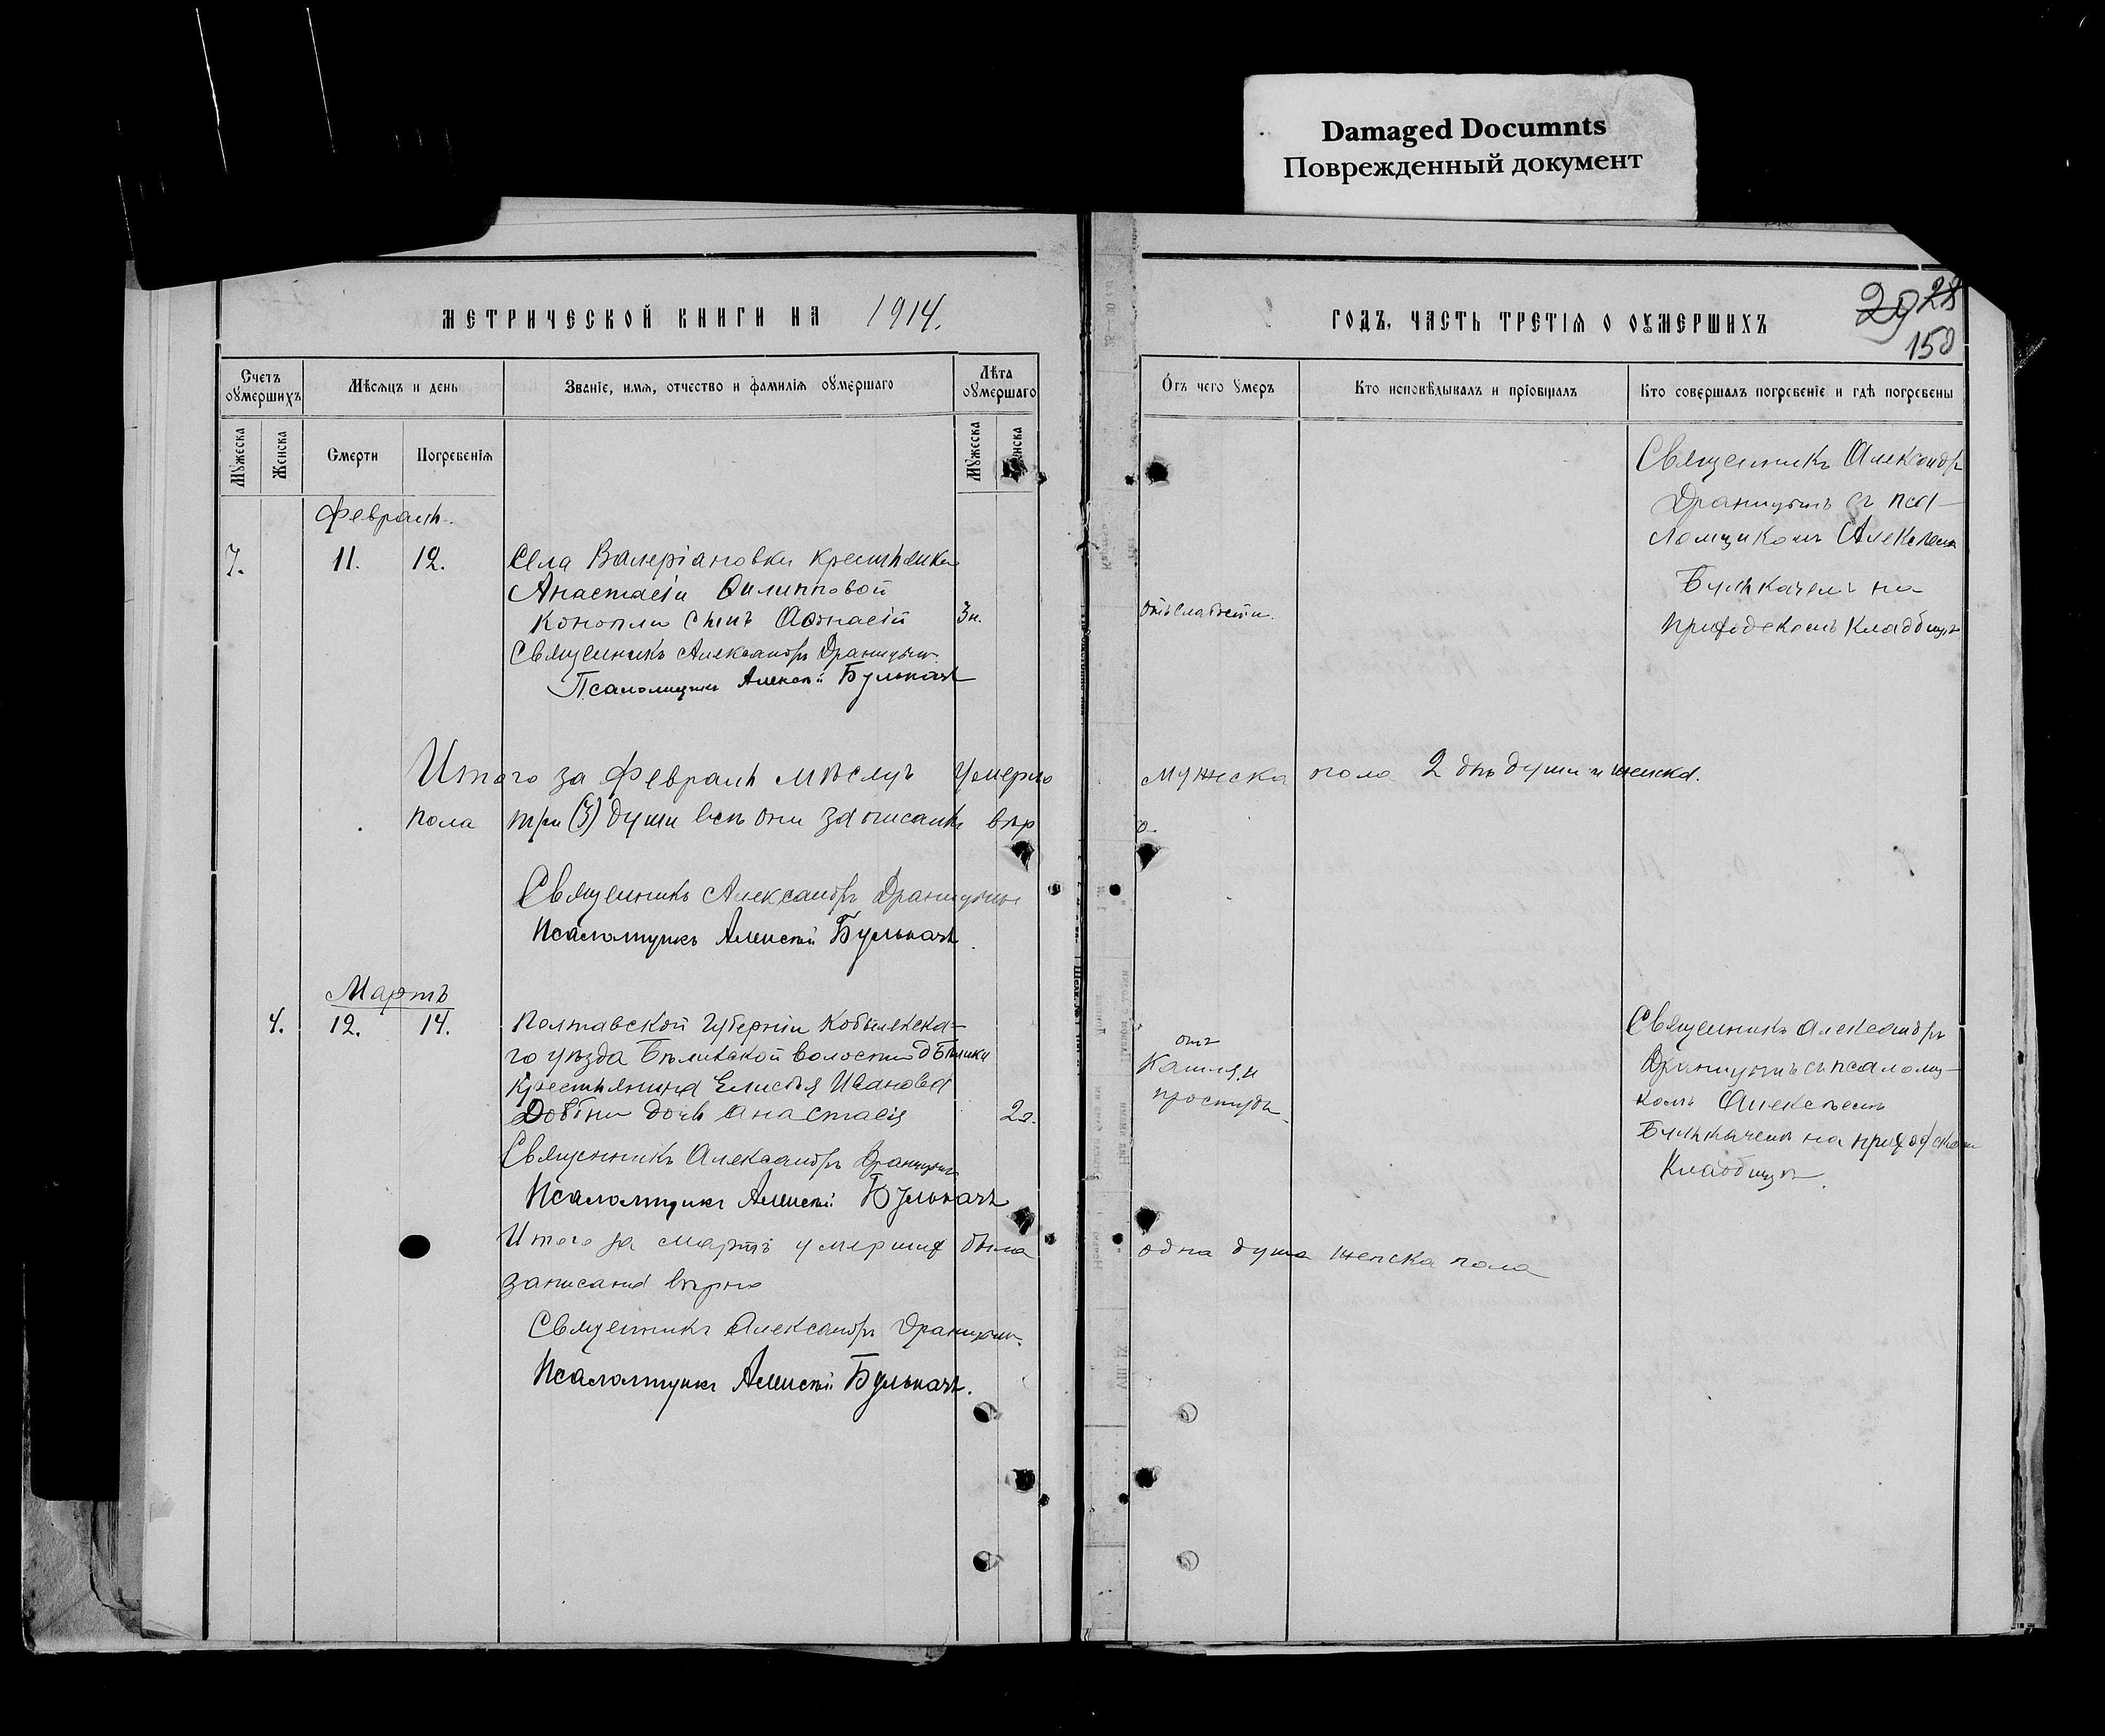 Damaged Documnts
Поврежденный документ
МЕТРИЧЕСКОЙ КНИГИ НА 1914.
ГОДЪ, ЧАСТЬ ТРЕТІѦ О ОУМЕРШИХЪ
29 28
150
Счетъ оумершихъ
Мѣсѧцъ и день
Званіе, имѧ, отчество и фамилія оумершаго
Лѣта оумершаго
Отъ чего умеръ
Кто исповѣдывалъ и пріобщалъ
Кто совершалъ погребеніе и гдѣ погребены
Мужеска
Женска
Смерти
Погребенія
Мужеска
Февраль.
7. 11. 12.
Села Валеріановки крестьянки
Анастасіи Филипповой
Конопли сынъ Афонасій
3 н.
Священникъ Александръ
Псаломщикъ Алексѣй Булькачъ
отъ слабости.
Священникъ Александръ
съ пса-
ломщикомъ Алексѣемъ
Булькачемъ на
приходскомъ кладбищѣ
Итого за Февраль мѣсяцъ умерло мужеска пола 2 двѣ души и женска.
пола три (3) души всѣ они записаны вѣрно.
Священникъ Александръ
Псаломщикъ Алексѣй Булькачъ.
Мартъ
4. 12. 14.
Полтавской губерніи Кобылякска-
го уѣзда Бѣликской волости д Бѣлики
крестьянина Елисѣя Иванова
Довбни дочь Анастасія
2 г.
отъ
Кашля и
простуды
Священникъ Александръ
Псаломщикъ Алексѣй Булькачъ
Священникъ Александръ
съ псаломщи-
комъ Алексѣемъ
Булькачемъ на приходскомъ
кладбищѣ.
Итого за Мартъ умершихъ была одна душа женска пола
записана вѣрно
Священникъ Александръ
Псаломщикъ Алексѣй Булькачъ.